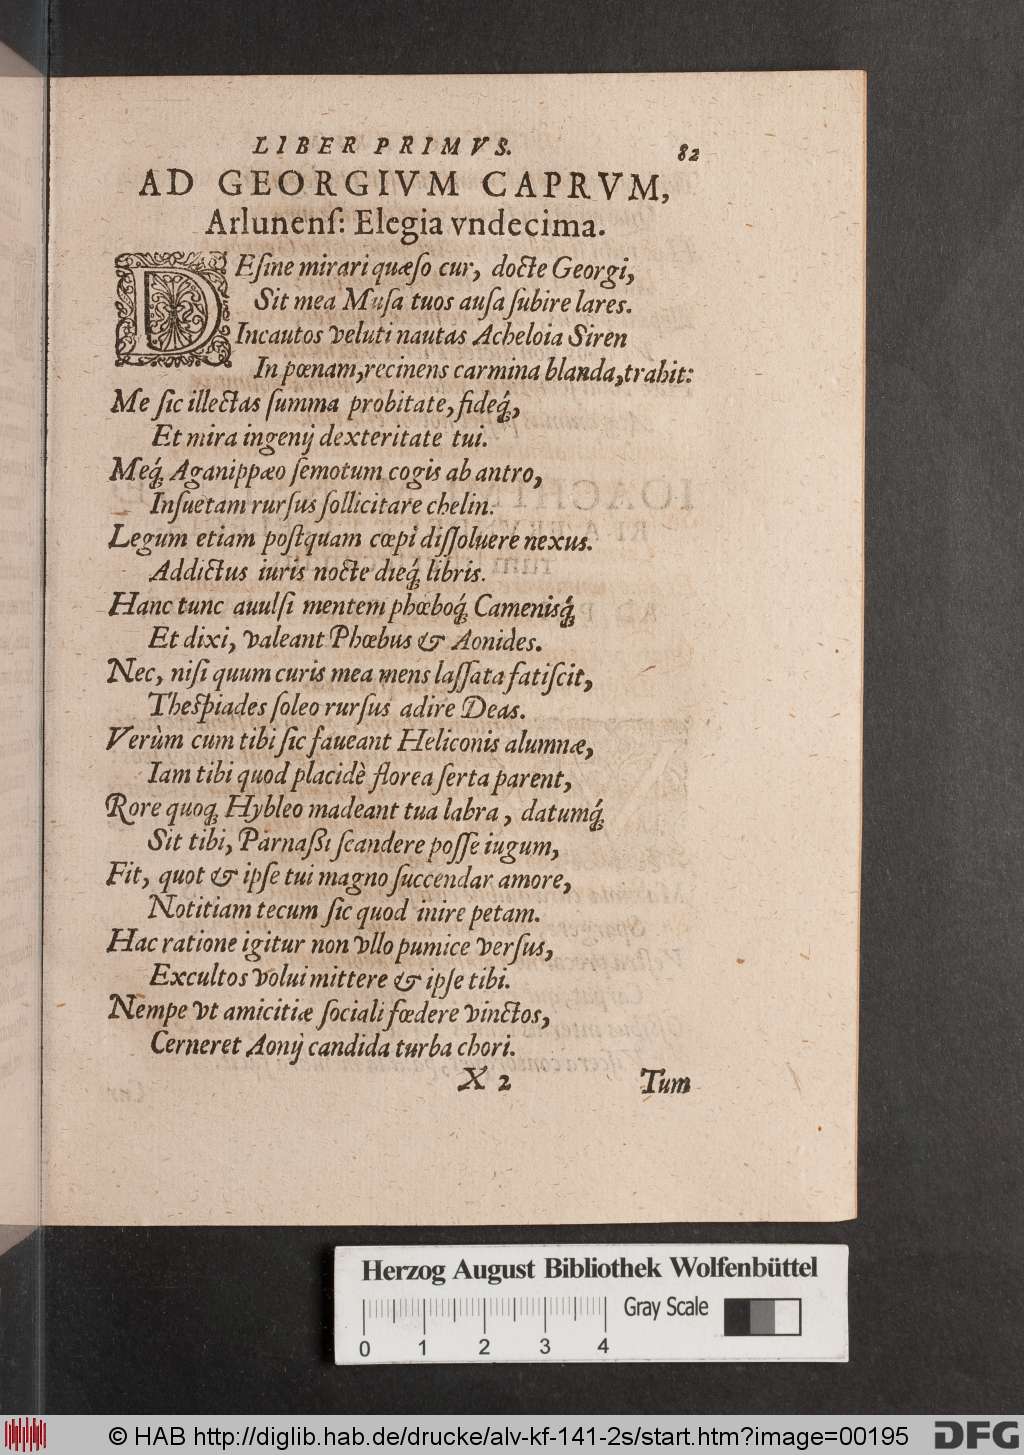 LIBER PRIMVS. 82
AD GEORGIVM CAPRVM,
Arlunenſ: Elegia vndecima.
DEſine mirari quæſo cur, docte Georgi,
Sit mea Muſa tuos auſa ſubire lares.
Incautos veluti nautas Acheloia Siren
In pœnam, recinens carmina blanda, trahit:
Me ſic illectas ſumma probitate, fideq́;,
Et mira ingenij dexteritate tui.
Meq́; Aganippæo ſemotum cogis ab antro,
Inſuetam rurſus ſollicitare chelin.
Legum etiam poſtquam cœpi diſſoluere nexus.
Addictus iuris nocte dieq́; libris.
Hanc tunc auulſi mentem phœboq́; Camenisq́;
Et dixi, valeant Phœbus & Aonides.
Nec, niſi quum curis mea mens laſſata fatiſcit,
Theſpiades ſoleo rurſus adire Deas.
Verùm cum tibi ſic faueant Heliconis alumnæ,
Iam tibi quod placidè florea ſerta parent,
Rore quoq; Hybleo madeant tua labra, datumq́;
Sit tibi, Parnaßi ſcandere poſſe iugum,
Fit, quot & ipſe tui magno ſuccendar amore,
Notitiam tecum ſic quod inire petam.
Hac ratione igitur non vllo pumice verſus,
Excultos volui mittere & ipſe tibi.
Nempe vt amicitiæ ſociali fœdere vinctos,
Cerneret Aonij candida turba chori.
X 2 Tum
Herzog August Bibliothek Wolfenbüttel
Gray Scale
0 1 2 3 4
© HAB http://diglib.hab.de/drucke/alv-kf-141-2s/start.htm?image=00195
DFG